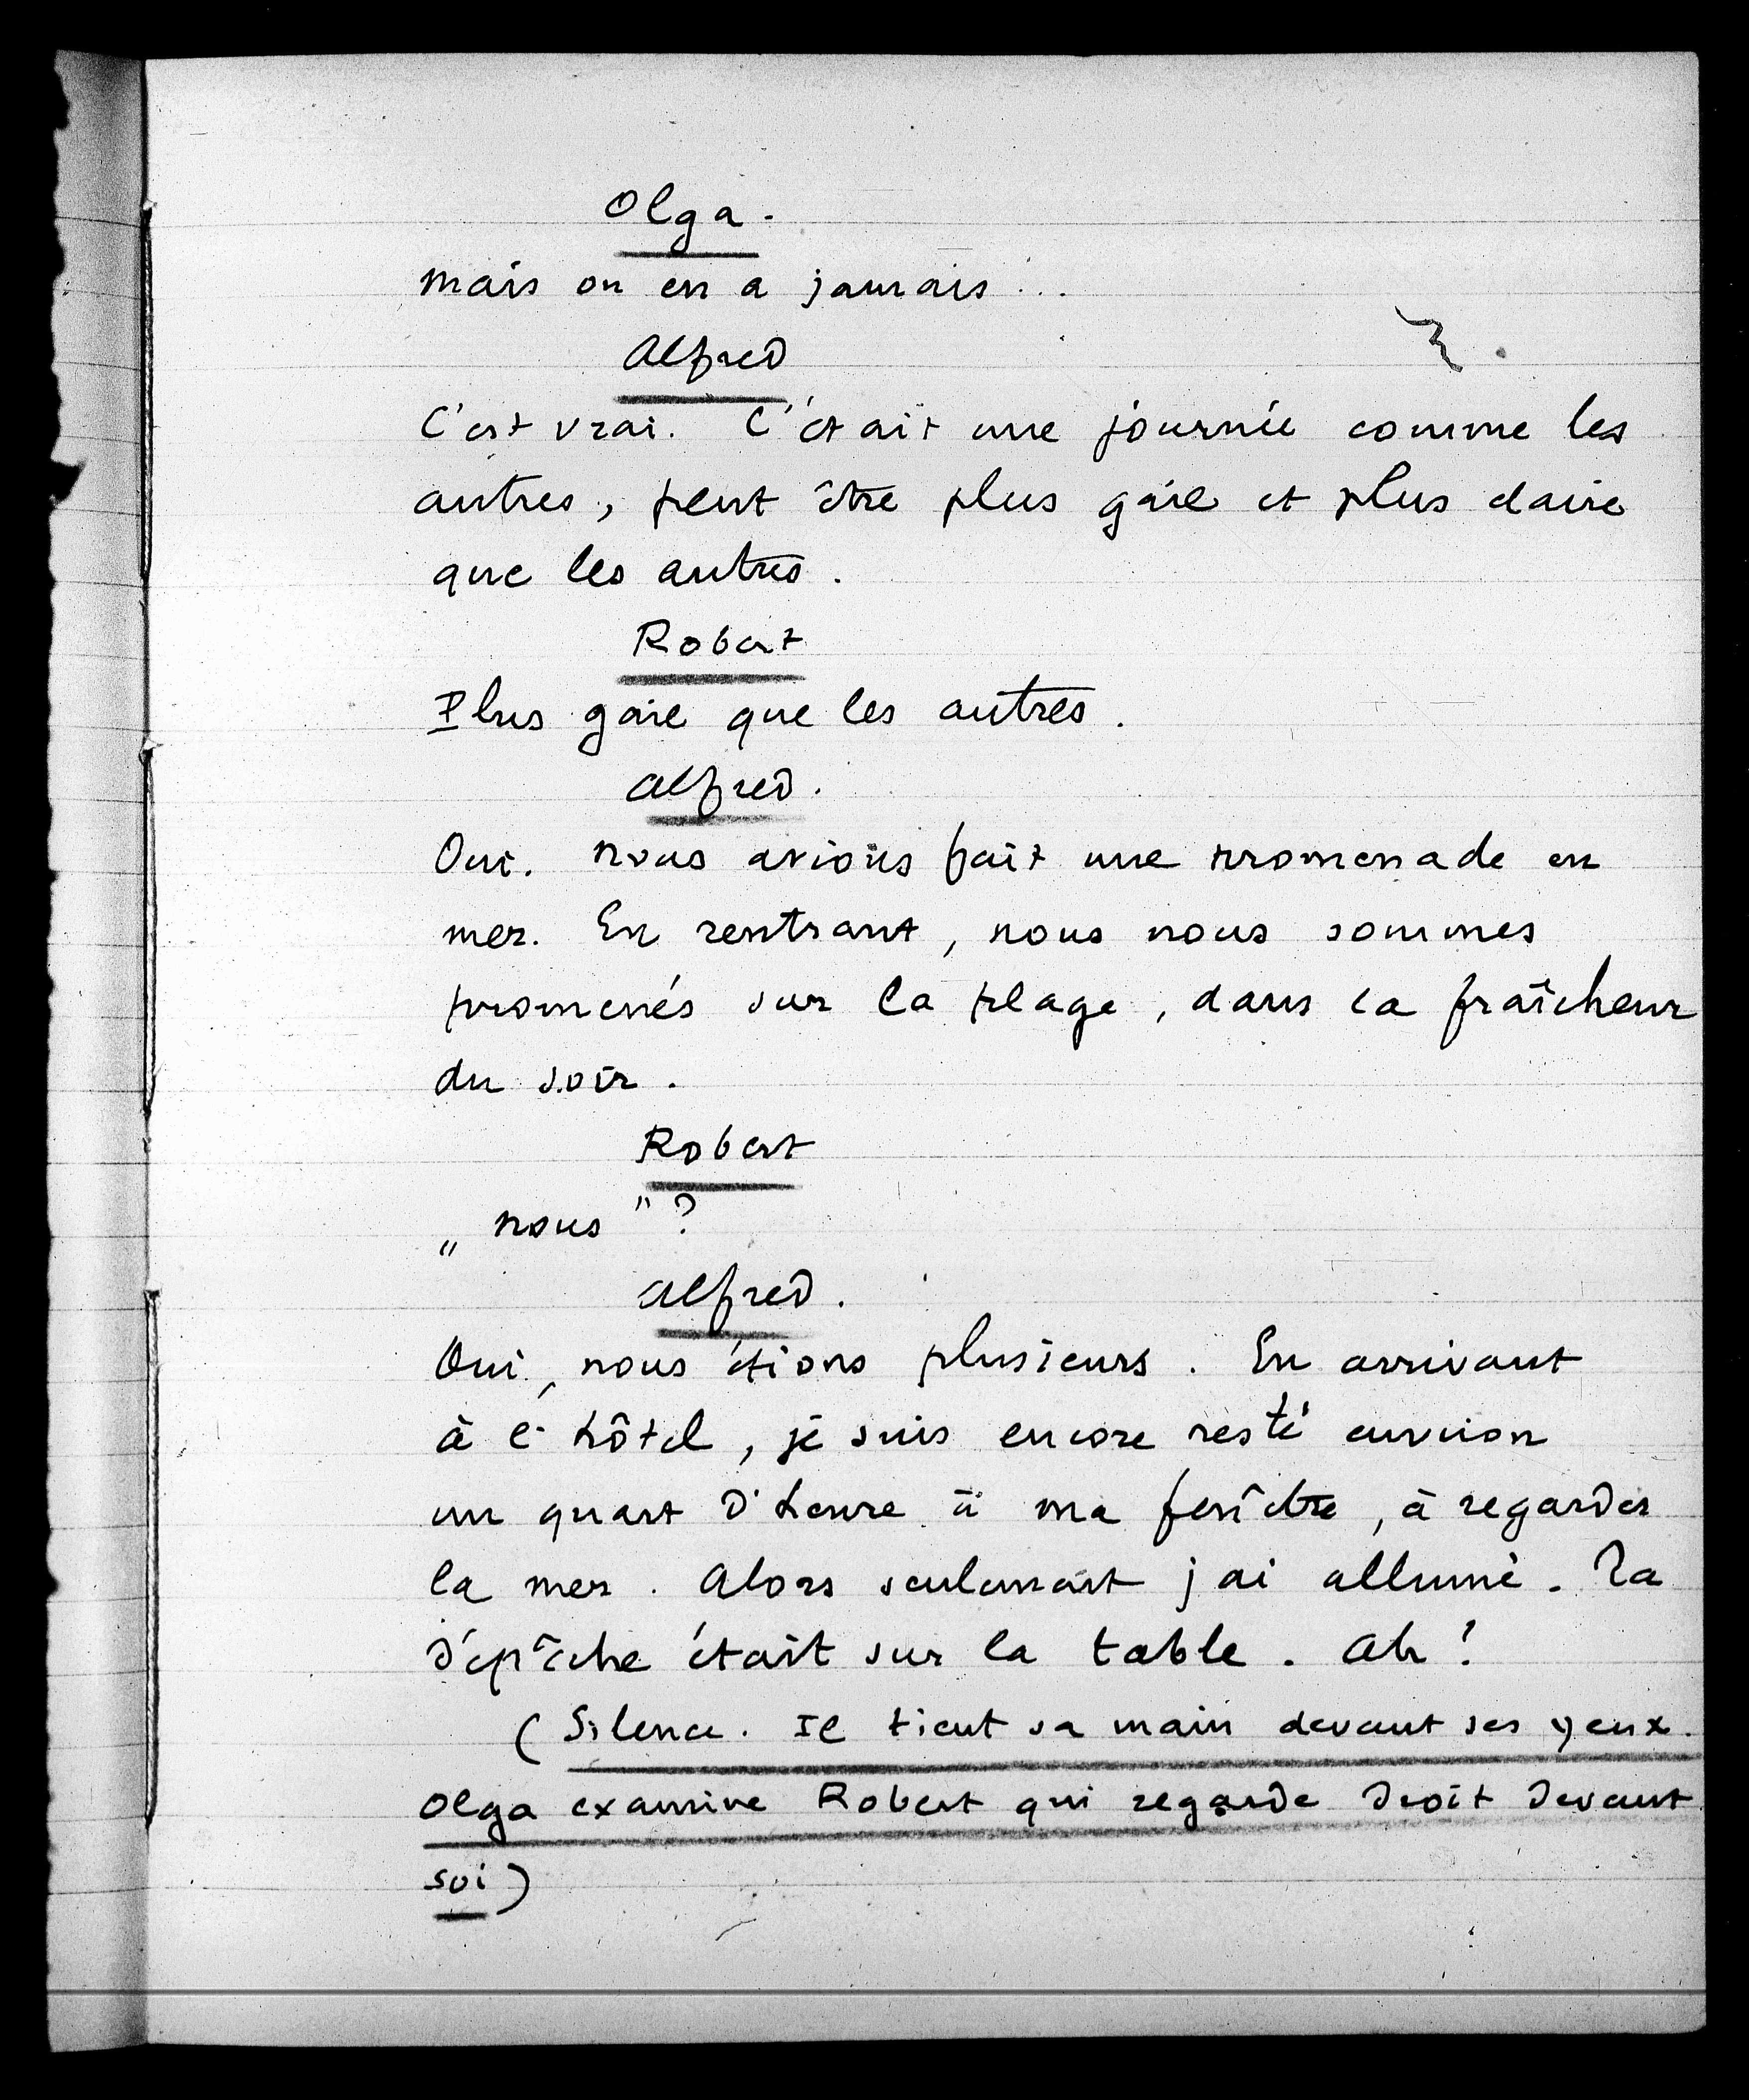 Olga.
mais on en a jamais...
Alfred
C'est vrai. C'était une journée comme les
autres, peut être plus gaie et plus claire
que les autres.
Robert
Plus gaie que les autres.
Alfred.
Oui. nous avions fait une promenade en
mer. En rentrant, nous nous sommes
promenés sur la plage, dans la fraîcheur
du soir.
Robert
„ nous " ?
Alfred.
Oui, nous étions plusieurs. En arrivant
à l'hôtel, je suis encore resté environ
un quart d'heure à ma fenêtre, à regarder
la mer. Alors seulement j'ai allumé. Ta
dépêche était sur la table. Ah !
(Silence. Il tient sa main devant ses yeux.
Olga examine Robert qui regarde droit devant
soi)